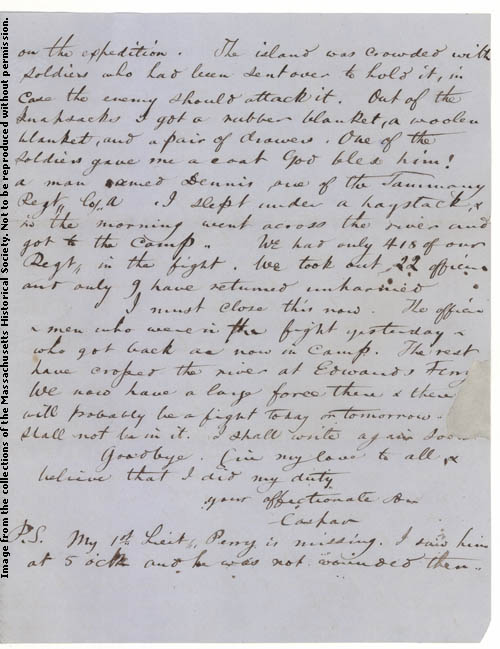 on the expedition. The island was crowded with
soldiers who had been sent over to hold it, in
case the enemy should attack it. Out of the
knapsacks I got a rubber blanket, a woolen
blanket, and a pair of drawers. One of the
soldiers gave me a coat God bless him!
a man named Dennis one of the Tammany
Regt,, Co, A. I slept under a haystack, &
in the morning went across the river and
got to the camp.. We had only 418 of our
Regt,, in the fight. We took out 22 officers
and only 9 have returned unharmed
I must close this now. The officers
& men who were in the fight yesterday &
who got back are now in camp. The rest
have crossed the river at Edwards Ferry
We now have a large force there & there
will probably be a fight today or tomorrow.
shall not be in it. I shall write again soon
Goodbye. Give my love to all, &
believe that I did my duty
your affectionate
Caspar
P.S. My 1st Lieut, Perry is missing. I saw him
at 5 ock and he was not wounded then..
Image from the collections of the Massachusetts Historical Society. Not to be reproduced without permission.